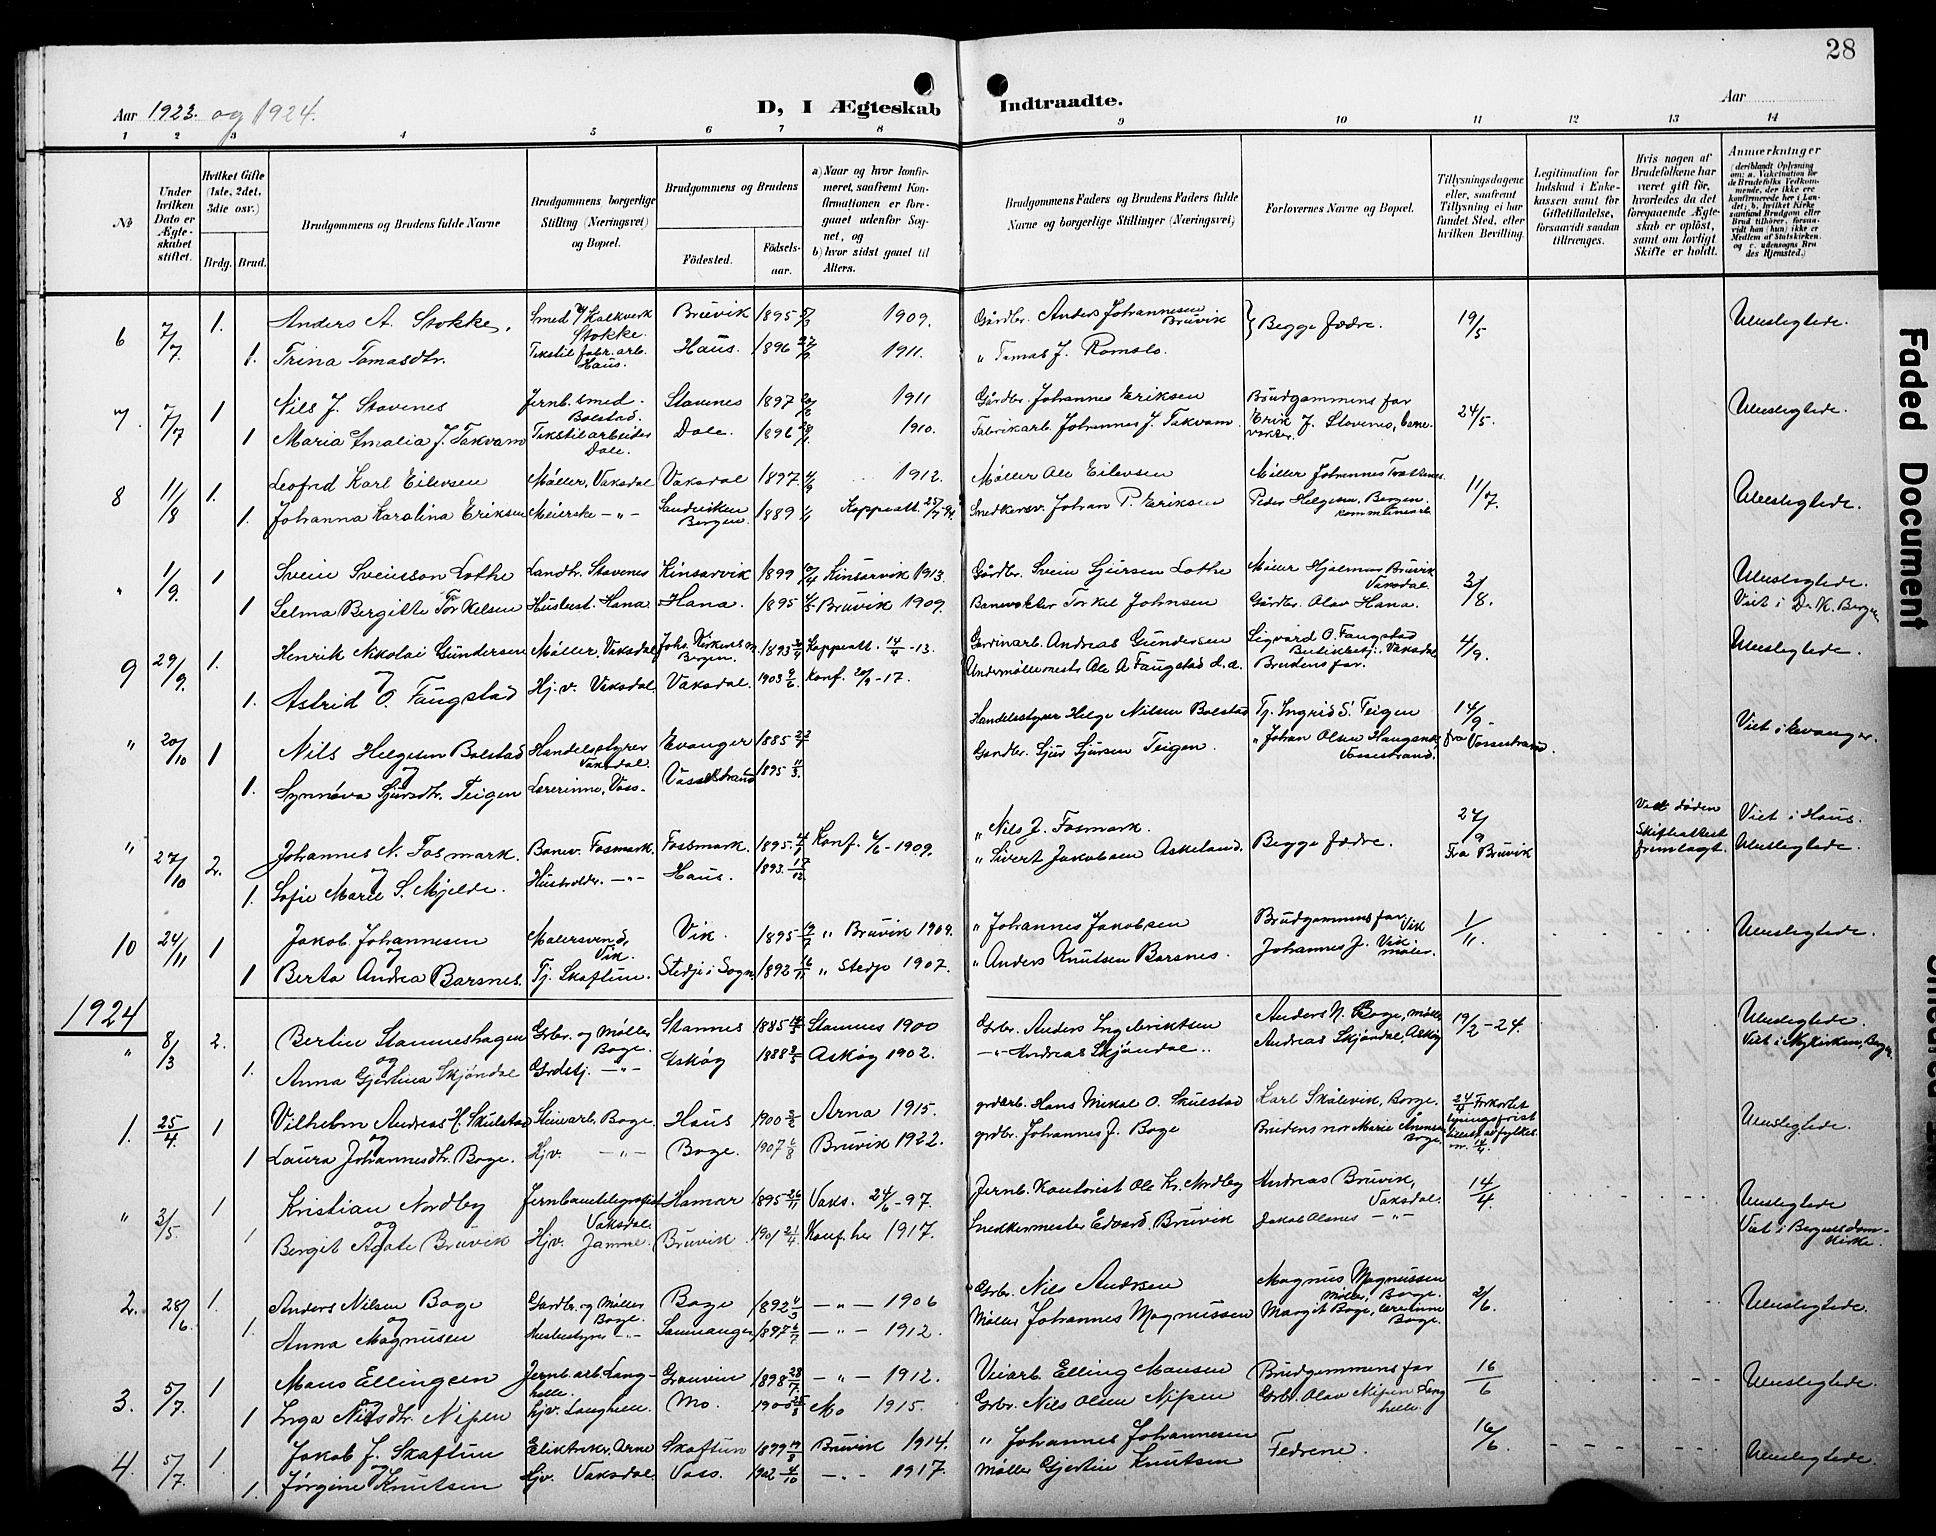 28
Aar 1923. og 1924.
D, I Ægteskab Indtraadte.
Aar
1 2 3 4 5 6 7 8 9 10 11 12 13 14
No
Under hvilken Dato er Ægteskabet stiftet.
Hvilket Gifte (1ste, 2det, 3die osv.)
Brdg. Brud.
Brudgommens og Brudens fulde Navne
Brudgommens og Brudens borgerlige Stilling (Næringsvei) og Bopæl.
Brudgommens og Brudens
Födested. Födselsaar.
a) Naar og hvor konfirmeret, saafremt Konfirmationen er foregaaet udenfor Sognet, og
b) hvor sidst gaaet til Alters.
Brudgommens Faders og Brudens Faders fulde Navne og borgerlige Stillinger (Næringsvei)
Forlovernes Navne og Bopæl.
Tillysningsdagene eller, saafremt Tillysning ei har fundet Sted, efter hvilken Bevilling.
Legitimation for Indskud i Enkekassen samt for Giftetilladelse, forsaavidt saadan tiltrænges.
Hvis nogen af Brudefolkene har været gift før, hvorledes da det foregaaende Ægteskab er opløst, samt om lovligt Skifte er holdt.
Anmærkninger
6 7/7 1. Anders A. Stokke. Smed v/ Kalkverk Stokke. Bruvik 1895 1909. Gårdbr. Anders Johannesen Bruvik } Begge fædre. 19/5 Ubeslegtede.
1. Trina Tomasdtr. Tekstilfabr.arb. Haus. Haus. 1896 1911. " Tomas J. Romslo.
7. 7/7 1 Nils J. Stavenes Jernb. smed. Bolstad. Stavenes 1897 1911 Gårdbr. Johannes Eriksen Brudgommens far 24/5. Ubeslegtede.
1 Maria Amalia J. Takvam Tekstilarbeider Dale. Dale. 1896 1910. Fabrikarb. Johannes J. Takvam. Erik J. Stavenes, banevokter.
8 11/8 1. Leofred Karl Eilevsen Møller, Vaksdal Vaksdal 1897 1912 Møller Ole Eilevsen Møller Johannes 11/7. Ubeslegtede.
1. Johanna Karolina Eriksen Meierske -"- Sandviken Bergen. 1889 Koppeatt. Snedkersv. Johan P. Eriksen Peder Helgesen, Bergen. kommunearb.
" 1/9. 1 Svein Sveinsson Lothe Landh. Stavenes Kinsarvik 1899 Kinsarvik 1913. Gårdbr. Svein Sjursen Lothe Møller Hjalmar Bruvik Vaksdal. 3/8. Ubeslegtede.
1 Selma Bergitte Torkelsen Husbest. Hana. Hana. 1895 Bruvik 1909. Banevokter Torkel Johnsen Gårdbr. Olav Hana. Viet i D. K. Bergen
9 29/9. 1. Henrik Nikolai Gundersen Møller, Vaksdal Johs. Kirkens m. Bergen. 1893 Koppeatt. 14/4-13. Andreas Gundersen Sigvard O. Faugstad Vaksdal 4/9. Ubeslegtede.
og
1. Astrid O. Faugstad Hj.v. Vaksdal Vaksdal. 1903 9/6 Konf. -17. Undermøllermester Ole A Faugstad d.a. Brudens far.
" 20/10 1 Nils Helgesen Bolstad Handelsstyrer Vaksdal. Evanger 1885 Handelsstyrer Helge Nilsen Bolstad Tj. Ingrid S. Teigen 14/9- Viet i Evanger.
og
1. Synnøva Sjursdtr. Teigen Lererinne, Voss- Vossestrand 1895 11/3. Gardbr. Sjur Sjursen Teigen. " Johan Olsen Vossestrand. fra Vossestrand.
" 27/10 2. Johannes N. Fosmark. Banev. Fosmark. Fossmark. 1895. Konf. 4/6-1909. " Nils J. Fosmark. Begge fædre. 27/9 Fra Bruvik Ved døden Skifteattest fremlagt. Viet i Haus. Ubeslegtede.
og
1. Sofie Marie S. Mjelde. Husholder. -"- Haus. 1893. 17/12. " Sivert Jakobsen Askeland.
10 24/11 1 Jakob Johannesen Malersvend, Vik. Vik. 1895 " Bruvik 1909. " Johannes Jakobsen Brudgommens far, Vik 1/11. Ubeslegtede.
og
1 Berta Andrea Barsnes. Tj. Skaftun. Stedje i Sogn 1892 16/11 " Stedje 1907. " Anders Knutsen Barsnes. Johannes J. Vik. møller.
1924
" 8/3 2. Bertin Stamneshagen Grbr. og Møller Boge. Stamnes 1885 Stamnes 1900 Grbr. Anders Ingebriktsen Anders N. Boge, møller 19/2-24. Ubeslegtede.
og
1. Anna Gjertina Skjøndal Grdstj. -"- Askøy 1888 Askøy 1902. -"- Andreas Skjøndal.. Andreas Skjøndal, Askøy Viet i Nykirken, Bergen
1. 25/4. 1 Vilhelm Andreas H. Skulstad Steinarb. Boge. Haus 1900 Arna 1915. grdarb. Hans Mikal O. Skulstad Karl Skålevik, Boge. 24/4 Forkortet lysingsfrist Ubeslegtede.
og
1 Laura Johannesdtr. Boge. Hjv. -"- Boge. 1907 6/8 Bruvik 1922. grdbr. Johannes J. Boge Brudens mor Marie Boge.
" 3/5. 1 Kristian Nordby Jernbanetelegrafist Vaksdal. Hamar 1895 26/11 Vaks. 24/6-97. Jernb. Kontorist Ole Kr. Nordby Andreas Bruvik, Vaksdal. 14/4. Ubeslegtede
og
1 Bergit Agate Bruvik Hjv. Samme. Bruvik 1901 21/4. Konf. her 1917. Snekkermester Edvard Bruvik Jakob Olsnes -"- Viet i Bergens domkirke.
2. 28/6 1. Anders Nilsen Boge Gardbr. og Møller Boge. Boge 1892 -"- 1906 Grbr. Nils Andersen Magnus Magnussen Møller, Boge. 2/6. Ubeslegtede.
og
1. Anna Magnusen Husbestyrer -"- Samnanger 1897 6/7. -"- 1912. Møller Johannes Magnussen Margit Boge, lererinne Boge.
3. 5/7 1 Mons Ellingsen Jernb.arb. Langhelle. Granvin 1898 28/7. -"- 1912. Veiarb. Elling Monsen Brudgommens far 16/6 Ubeslegtede.
og
1 Inga Nilsdtr. Nipen Hjv. Langhelle. Mo. 1900 Mo 1915. Grbr. Nils Olsen Nipen Grbr. Olav Nipen Langhelle.
4. 5/7 1. Jakob J. Skaftun Elektriker, Arne Skaftun 1899 19/8 Bruvik 1914. " Johannes Johannesen Fedrene. 16/6. Ubeslegtede.
og
1. Jørgine Knutsen Hjv. Vaksdal. Voss. 1902 4/10 -"- 1917. Møller Gjertin Knutsen
Faded Document